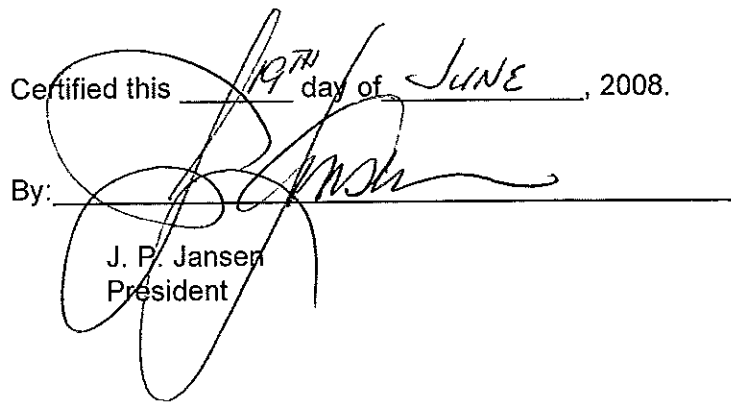 Certified this 19TH day of JUNE, 2008.
By:
J. P. Jansen
President